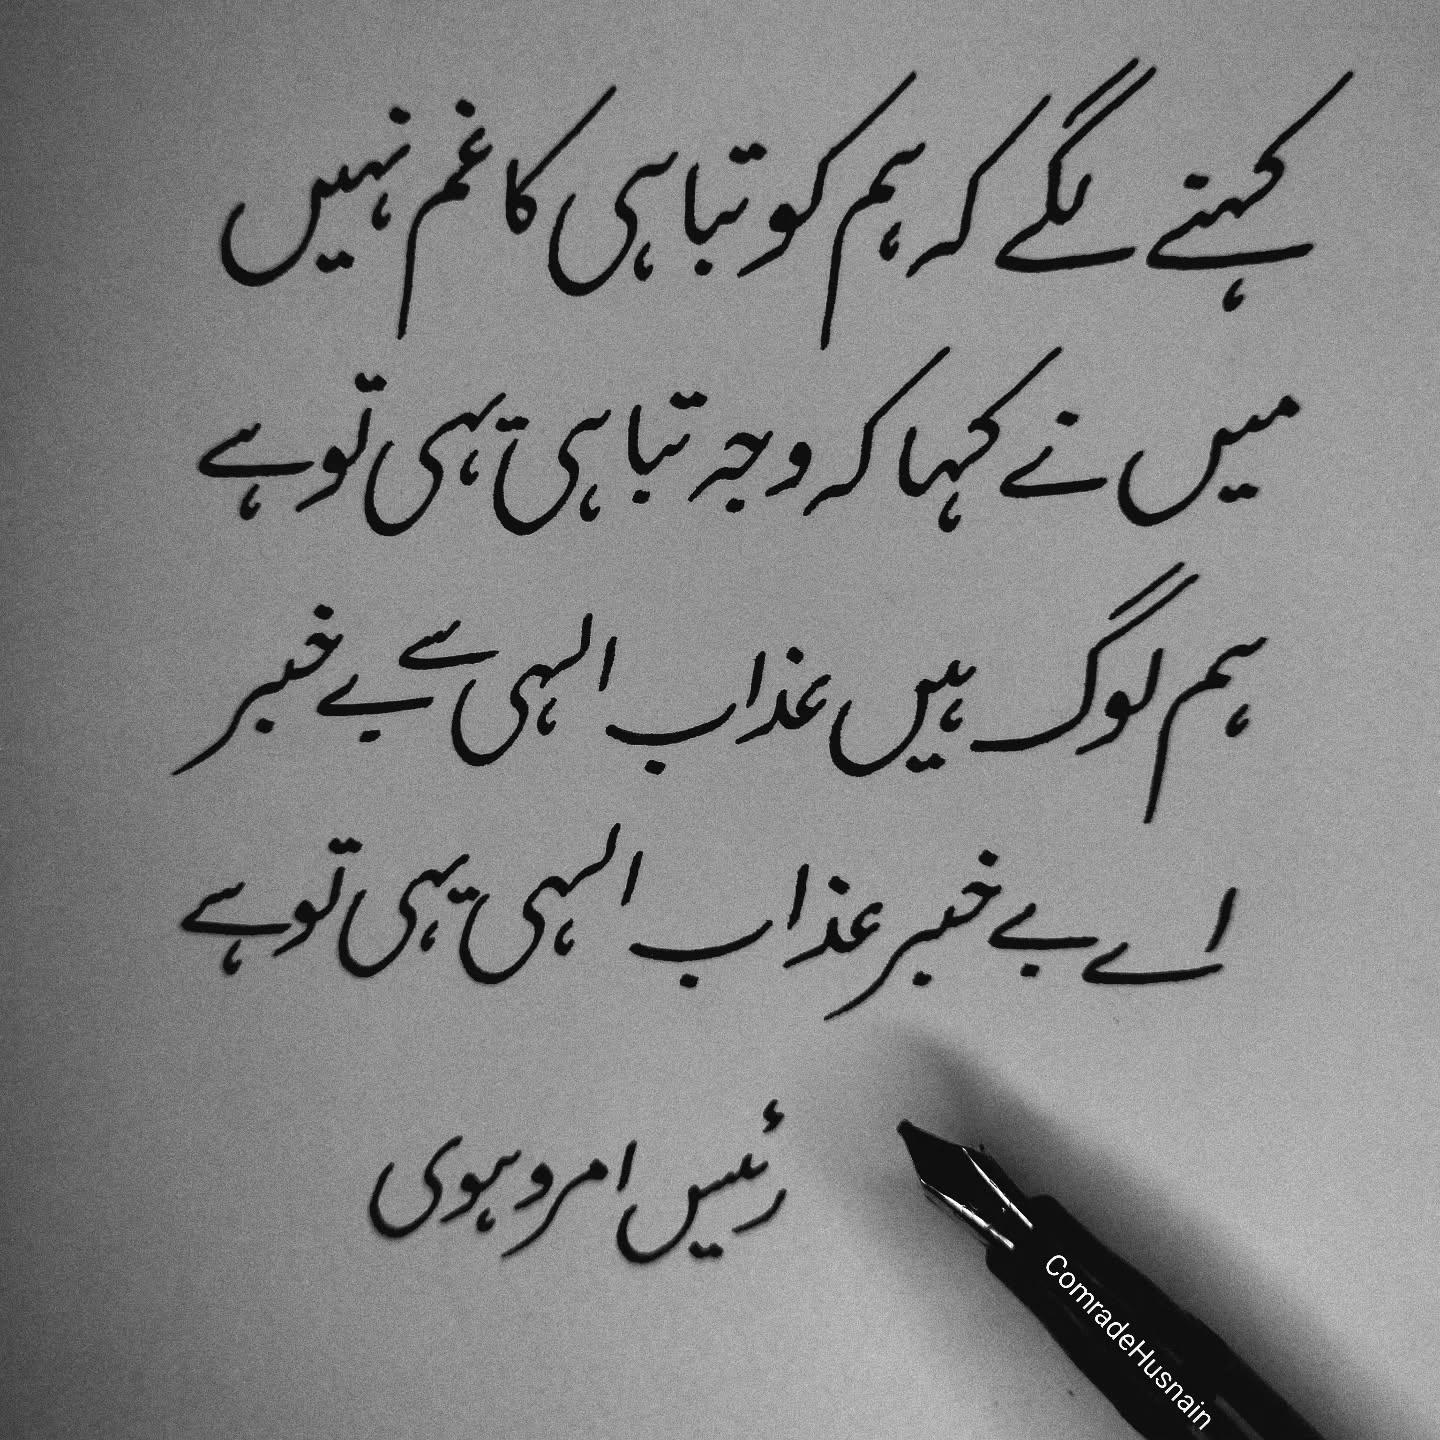 کہنے لگے کہ ہم کو تباہی کا غم نہیں
میں نے کہا کہ وجہ تباہی یہی تو ہے
ہم لوگ ہیں عذاب الہی سے بے خبر
اے بے خبر عذاب الہی یہی تو ہے
رئیس امروہوی
ComradeHusnain